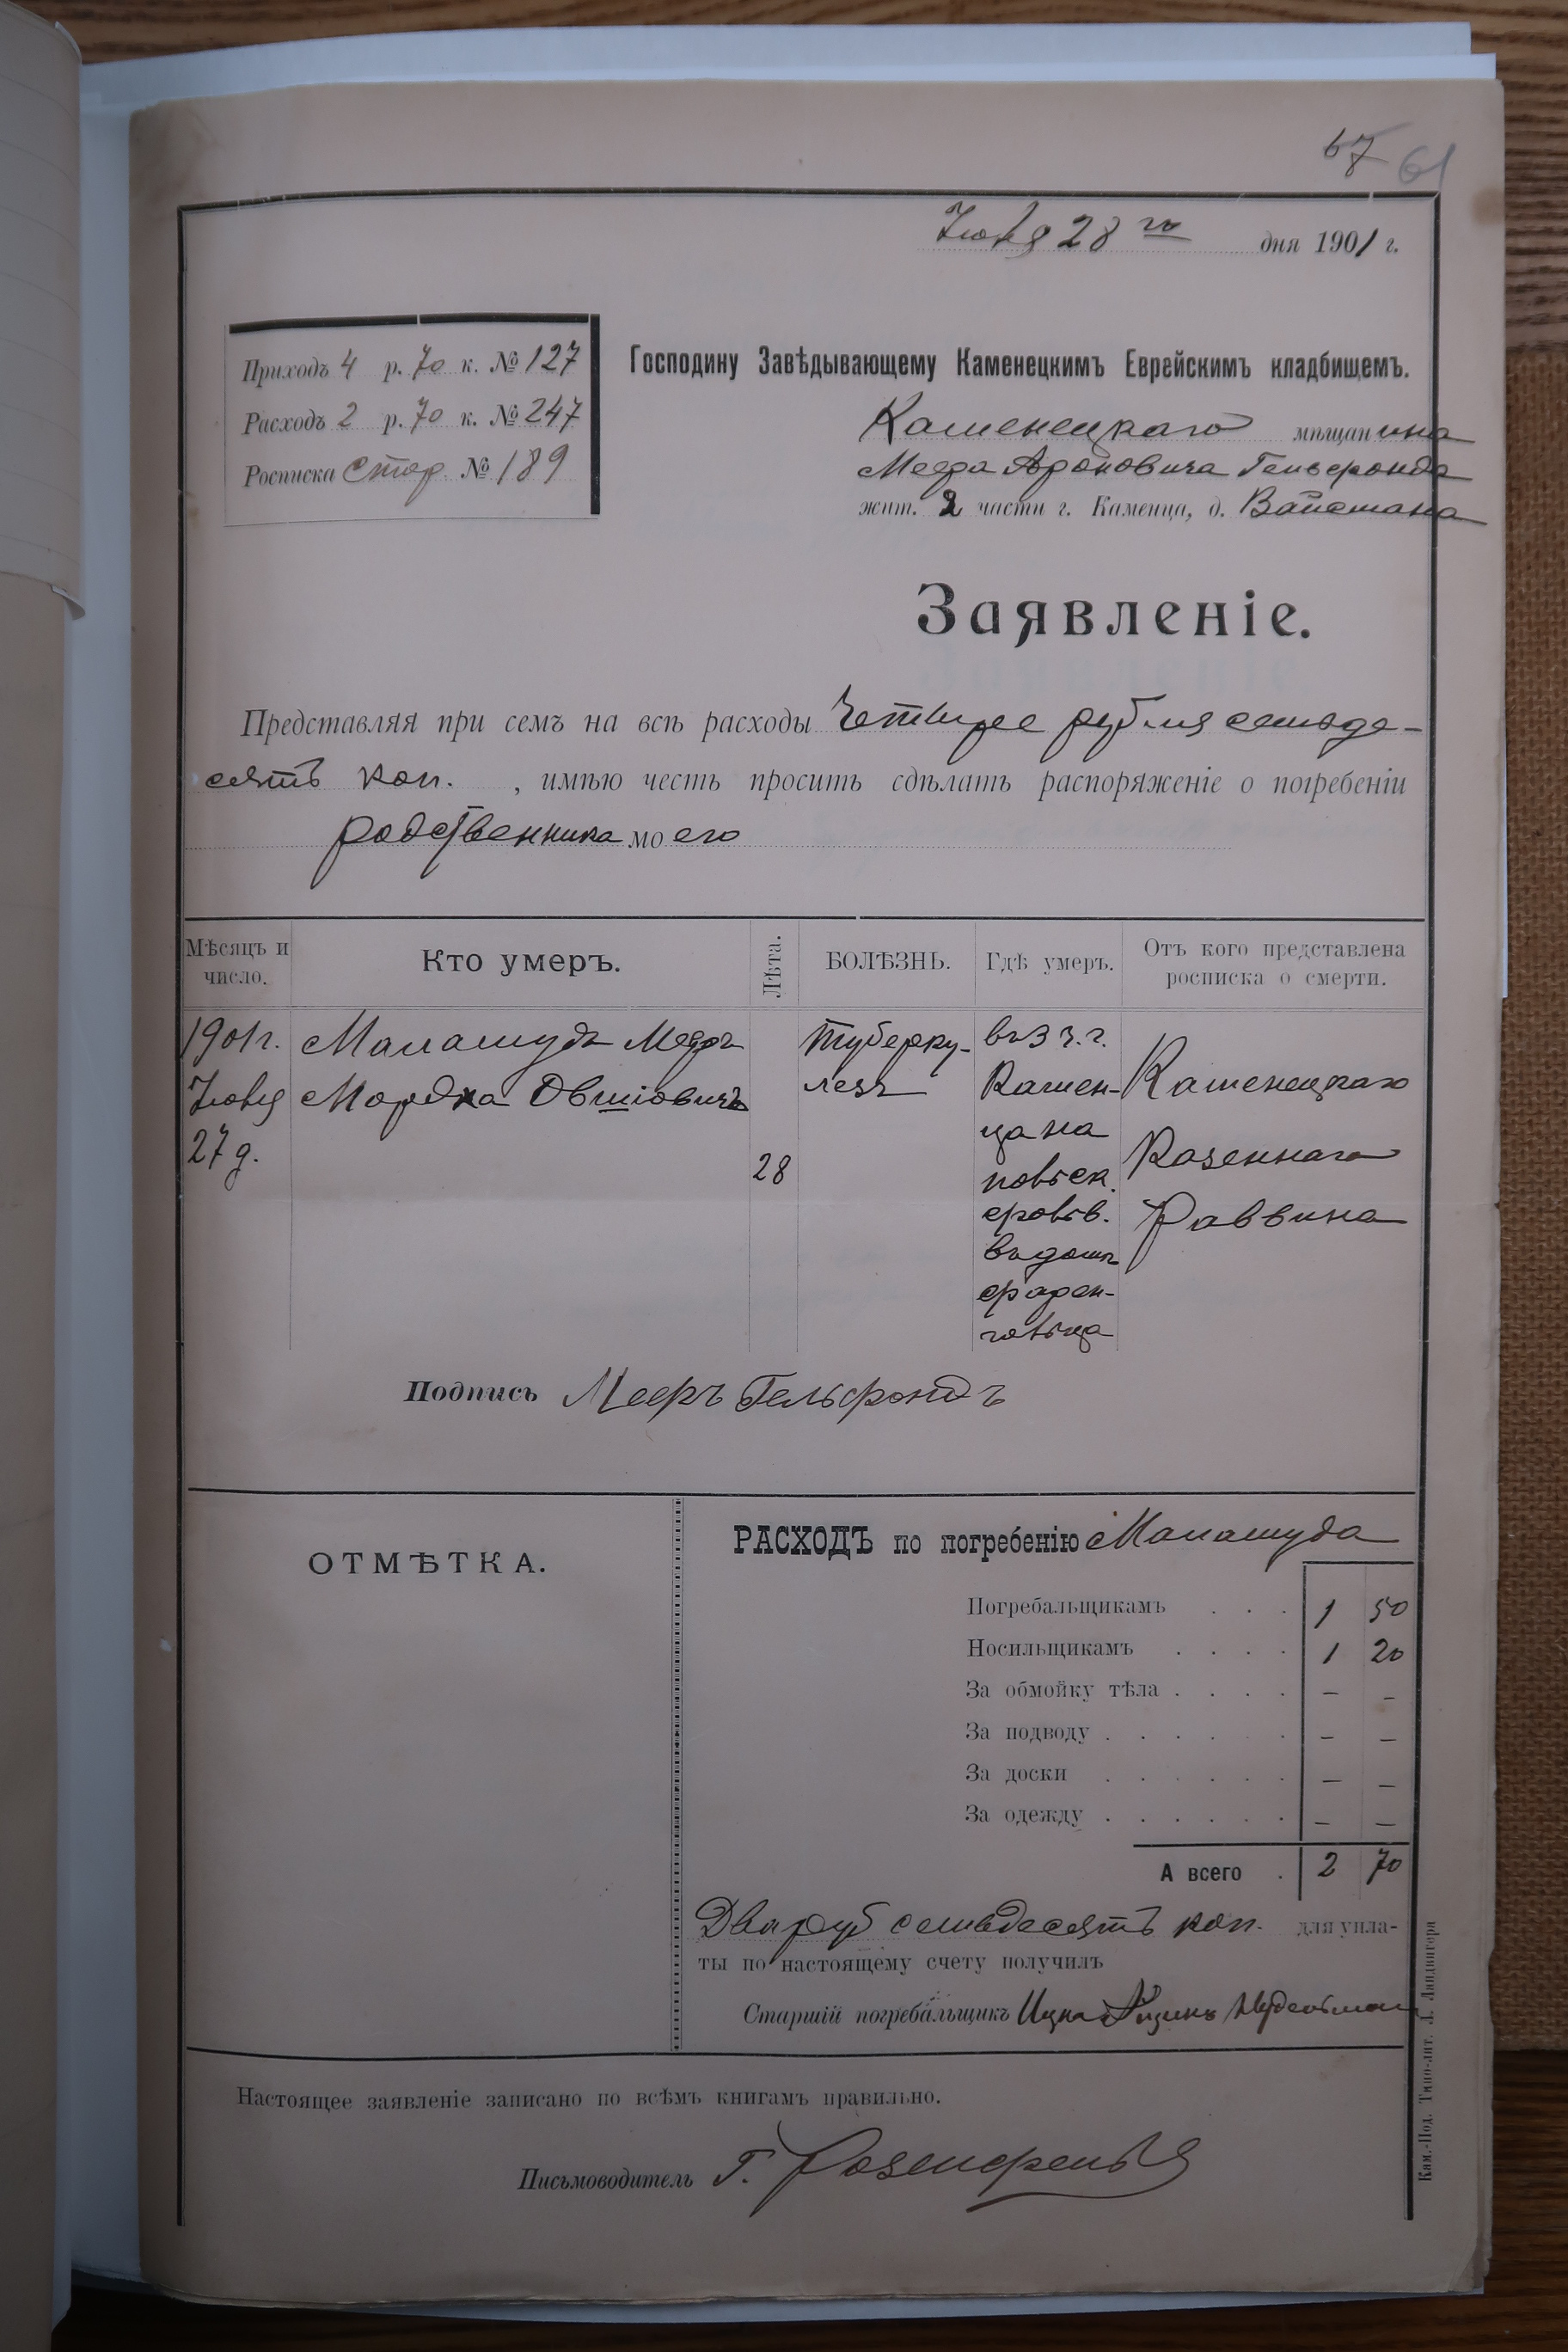 67 61
Іюня 28 го дня 1901 г.
Приходъ 4 р. 70 к. № 127
Расходъ 2 р. 70 к. № 247
Росписка стор. № 189
Господину Завѣдывающему Каменецкимъ Еврейскимъ кладбищемъ.
Каменецкаго мѣщанина
Меера Ароновича Гельфонда
жит. 2 части г. Каменца, д. Вайсмана
Заявленіе.
Представляя при семъ на всѣ расходы Четыре рубля семьде-
сятъ коп. , имѣю честь просить сдѣлать распоряженіе о погребеніи
родственника моего
Мѣсяцъ и число. Кто умеръ. Лѣта. БОЛѢЗНЬ. Гдѣ умеръ. Отъ кого представлена росписка о смерти.
1901 г. Манашудъ Мееръ Туберку- въ 3 ч. г.
Іюня Мордка Овшіовичъ лезъ Камен- Каменецкаго
27 д. ца на
28 Казеннаго
Раввина
въ домѣ
Подпись Мееръ Гельфондъ
ОТМѢТКА.
РАСХОДЪ по погребенію Манашуда
Погребальщикамъ . . . 1 50
Носильщикамъ . . . . 1 20
За обмойку тѣла . . . . – –
За подводу . . . . . – –
За доски . . . . . . – –
За одежду . . . . . . – –
А всего . 2 70
Два руб семьдесятъ коп. для упла-
ты по настоящему счету получилъ
Старшій погребальщикъ Ицка
Настоящее заявленіе записано по всѣмъ книгамъ правильно.
Письмоводитель Г. Розенфельд
Кам.-Под. Типо-лит. Л. Ландвигера